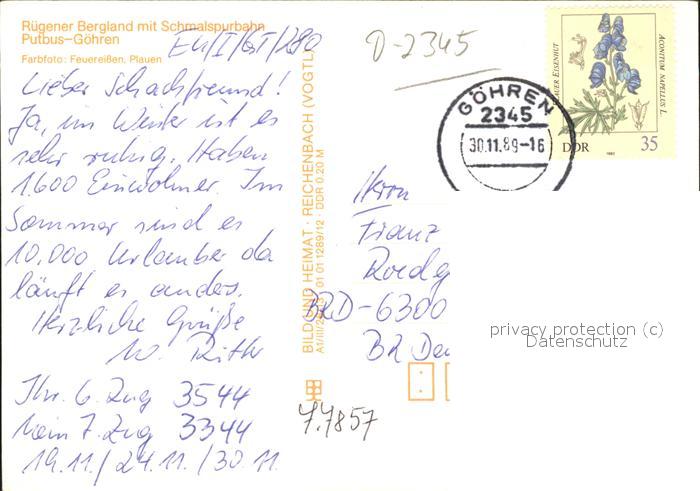 Rügener Bergland mit Schmalspurbahn
Putbus-Göhren
Farbfoto: Feuereißen, Plauen
Lieber Schachfreund!
Ja, im Winter ist es
sehr ruhig. Haben
1.600 Einwohner. Im
Sommer sind es
10.000 Urlauber da
läuft es anders.
Herzliche Grüße
W.
Ihr 6. Zug 3544
Mein 7. Zug 3344
19.11./24.11./30.11.
BILD UND HEIMAT · REICHENBACH (VOGTL)
01 01 1289/12 · DDR 0,20 M
D-2345
GÖHREN
2345
30.11.89-16
BLAUER EISENHUT
ACONITUM NAPELLUS L.
DDR
1982
35
Herrn
Franz
BRD-6300
7.7857
privacy protection (c)
Datenschutz